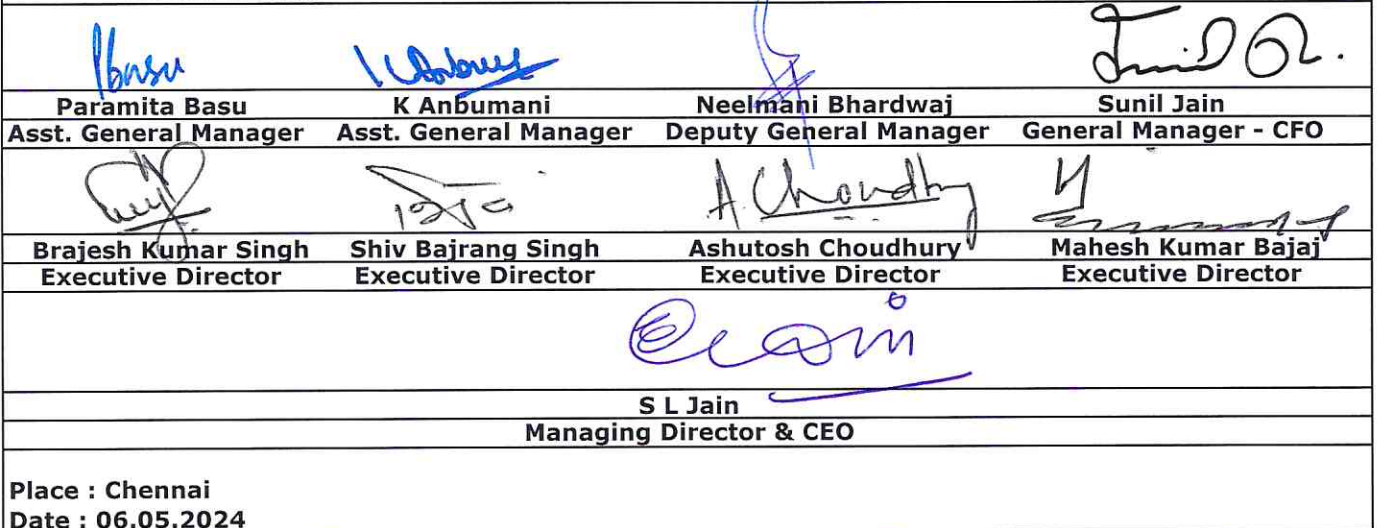 Pbasu
Paramita Basu K Anbumani Neelmani Bhardwaj Sunil Jain
Asst. General Manager Asst. General Manager Deputy General Manager General Manager - CFO
A. Choudhury
Brajesh Kumar Singh Shiv Bajrang Singh Ashutosh Choudhury Mahesh Kumar Bajaj
Executive Director Executive Director Executive Director Executive Director
S L Jain
Managing Director & CEO
Place : Chennai
Date : 06.05.2024